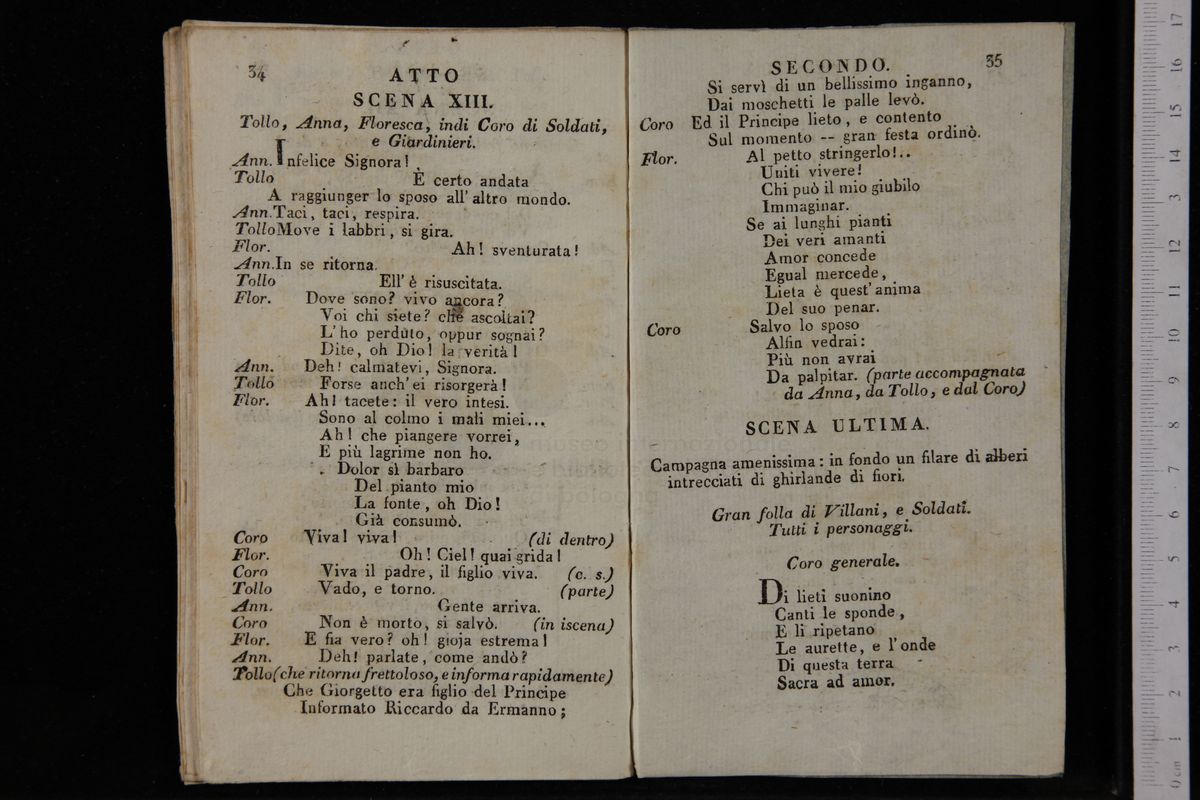 34
ATTO
SCENA XIII.
Tollo, Anna, Floresca, indi Coro di Soldati,
e Giardinieri.
Ann. Infelice Signora!
Tollo È certo andata
A raggiunger lo sposo all' altro mondo.
Ann. Taci, taci, respira.
Tollo Move i labbri, si gira.
Flor. Ah! sventurata!
Ann. In se ritorna.
Tollo Ell' è risuscitata.
Flor. Dove sono? vivo ancora?
Voi chi siete? che ascoltai?
L' ho perduto, oppur sognai?
Dite, oh Dio! la verità!
Ann. Deh! calmatevi, Signora.
Tollo Forse anch' ei risorgerà!
Flor. Ah! tacete: il vero intesi.
Sono al colmo i mali miei...
Ah! che piangere vorrei,
E più lagrime non ho.
Dolor sì barbaro
Del pianto mio
La fonte, oh Dio!
Già consumò.
Coro Viva! viva! (di dentro)
Flor. Oh! Ciel! quai grida!
Coro Viva il padre, il figlio viva. (c. s.)
Tollo Vado, e torno. (parte)
Ann. Gente arriva.
Coro Non è morto, si salvò. (in iscena)
Flor. E fia vero? oh! gioja estrema!
Ann. Deh! parlate, come andò?
Tollo (che ritorna frettoloso, e informa rapidamente)
Che Giorgetto era figlio del Principe
Informato Riccardo da Ermanno;
SECONDO. 35
Si servì di un bellissimo inganno,
Dai moschetti le palle levò.
Coro Ed il Principe lieto, e contento
Sul momento -- gran festa ordinò.
Flor. Al petto stringerlo!..
Uniti vivere!
Chi può il mio giubilo
Immaginar.
Se ai lunghi pianti
Dei veri amanti
Amor concede
Egual mercede,
Lieta è quest' anima
Del suo penar.
Coro Salvo lo sposo
Alfin vedrai:
Più non avrai
Da palpitar. (parte accompagnata
da Anna, da Tollo, e dal Coro)
SCENA ULTIMA.
Campagna amenissima: in fondo un filare di alberi
intrecciati di ghirlande di fiori.
Gran folla di Villani, e Soldati.
Tutti i personaggi.
Coro generale.
Di lieti suonino
Canti le sponde,
E li ripetano
Le aurette, e l' onde
Di questa terra
Sacra ad amor.
0 cm 1 2 3 4 5 6 7 8 9 10 11 12 13 14 15 16 17